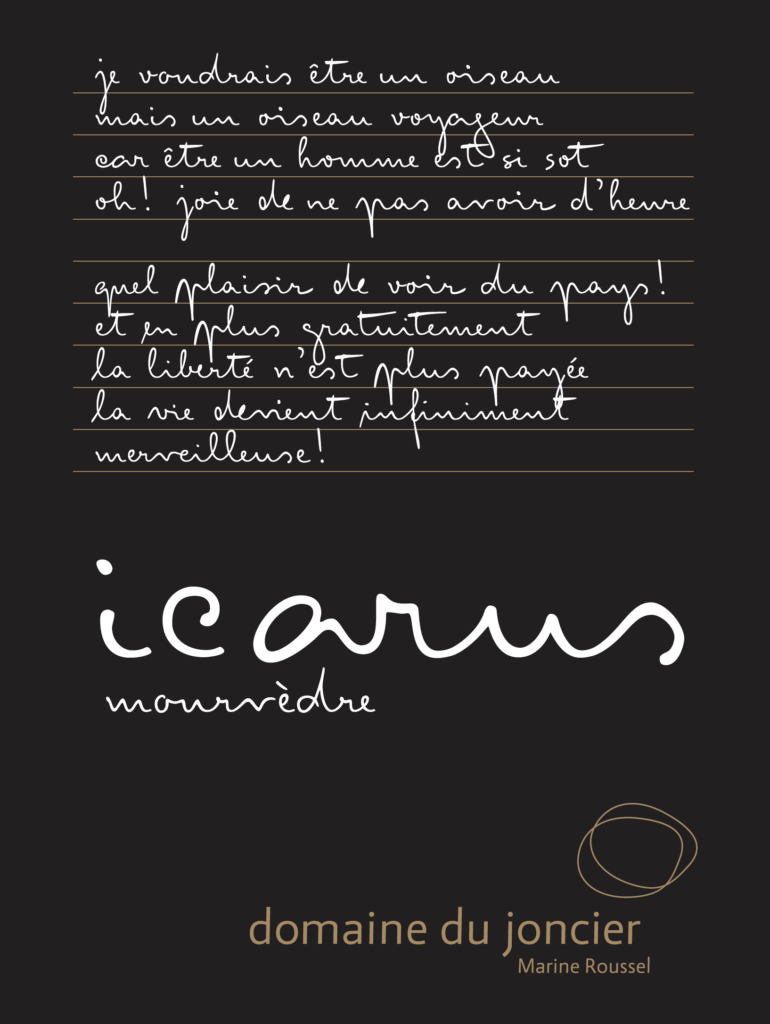 je voudrais être un oiseau
mais un oiseau voyageur
car être un homme est si sot
oh! joie de ne pas avoir d'heure
quel plaisir de voir du pays!
et en plus gratuitement
la liberté n'est plus payée
la vie devient infiniment
merveilleuse!
icarus
mourvèdre
domaine du joncier
Marine Roussel